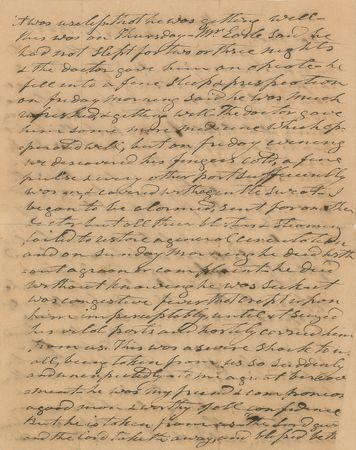 it was as all that he was getting well -
this was on Thursday - Mr Eddle said he
had not slept for two or three nights
& the doctor gave him an opiate - he
fell into a fine sleep & prespiration
on friday morning said he was much
refreshed & getting well the doctor gave
him some more medicine which op-
perated well, but on friday evening
we discovered his fingers cold, a fine
pulse & every other part sufficiently
warm & covered with a gentle sweat I
began to be alarmed, sent for another
but all their blisters & steaming
failed to restore a general circulation
and on sunday morning he died with
out a groan or complaint he died
without knowing he was sick it
was congestive fever that crept upon
him imperceptibly until it seized
his vital parts and hastily carried him
from us. This was a severe shock to us
all, being taken from us so suddenly
and unexpectedly a great bereave
ment he was my friend & companion
a good man & worthy of all confidence
But he is taken from us the Lord gave
and the Lord taketh away, and blessed be the